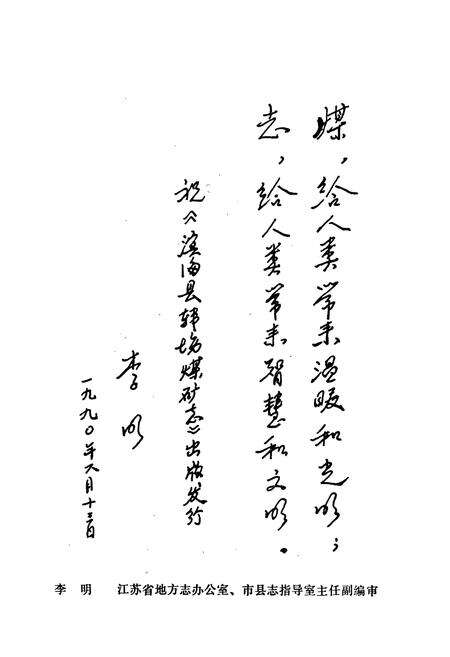 煤，给人类带来温暖和光明；
志，给人类带来智慧和文明。
祝《滨海县韩场煤矿志》出版发行
李明
一九九〇年六月十三日
李 明 江苏省地方志办公室、市县志指导室主任副编审